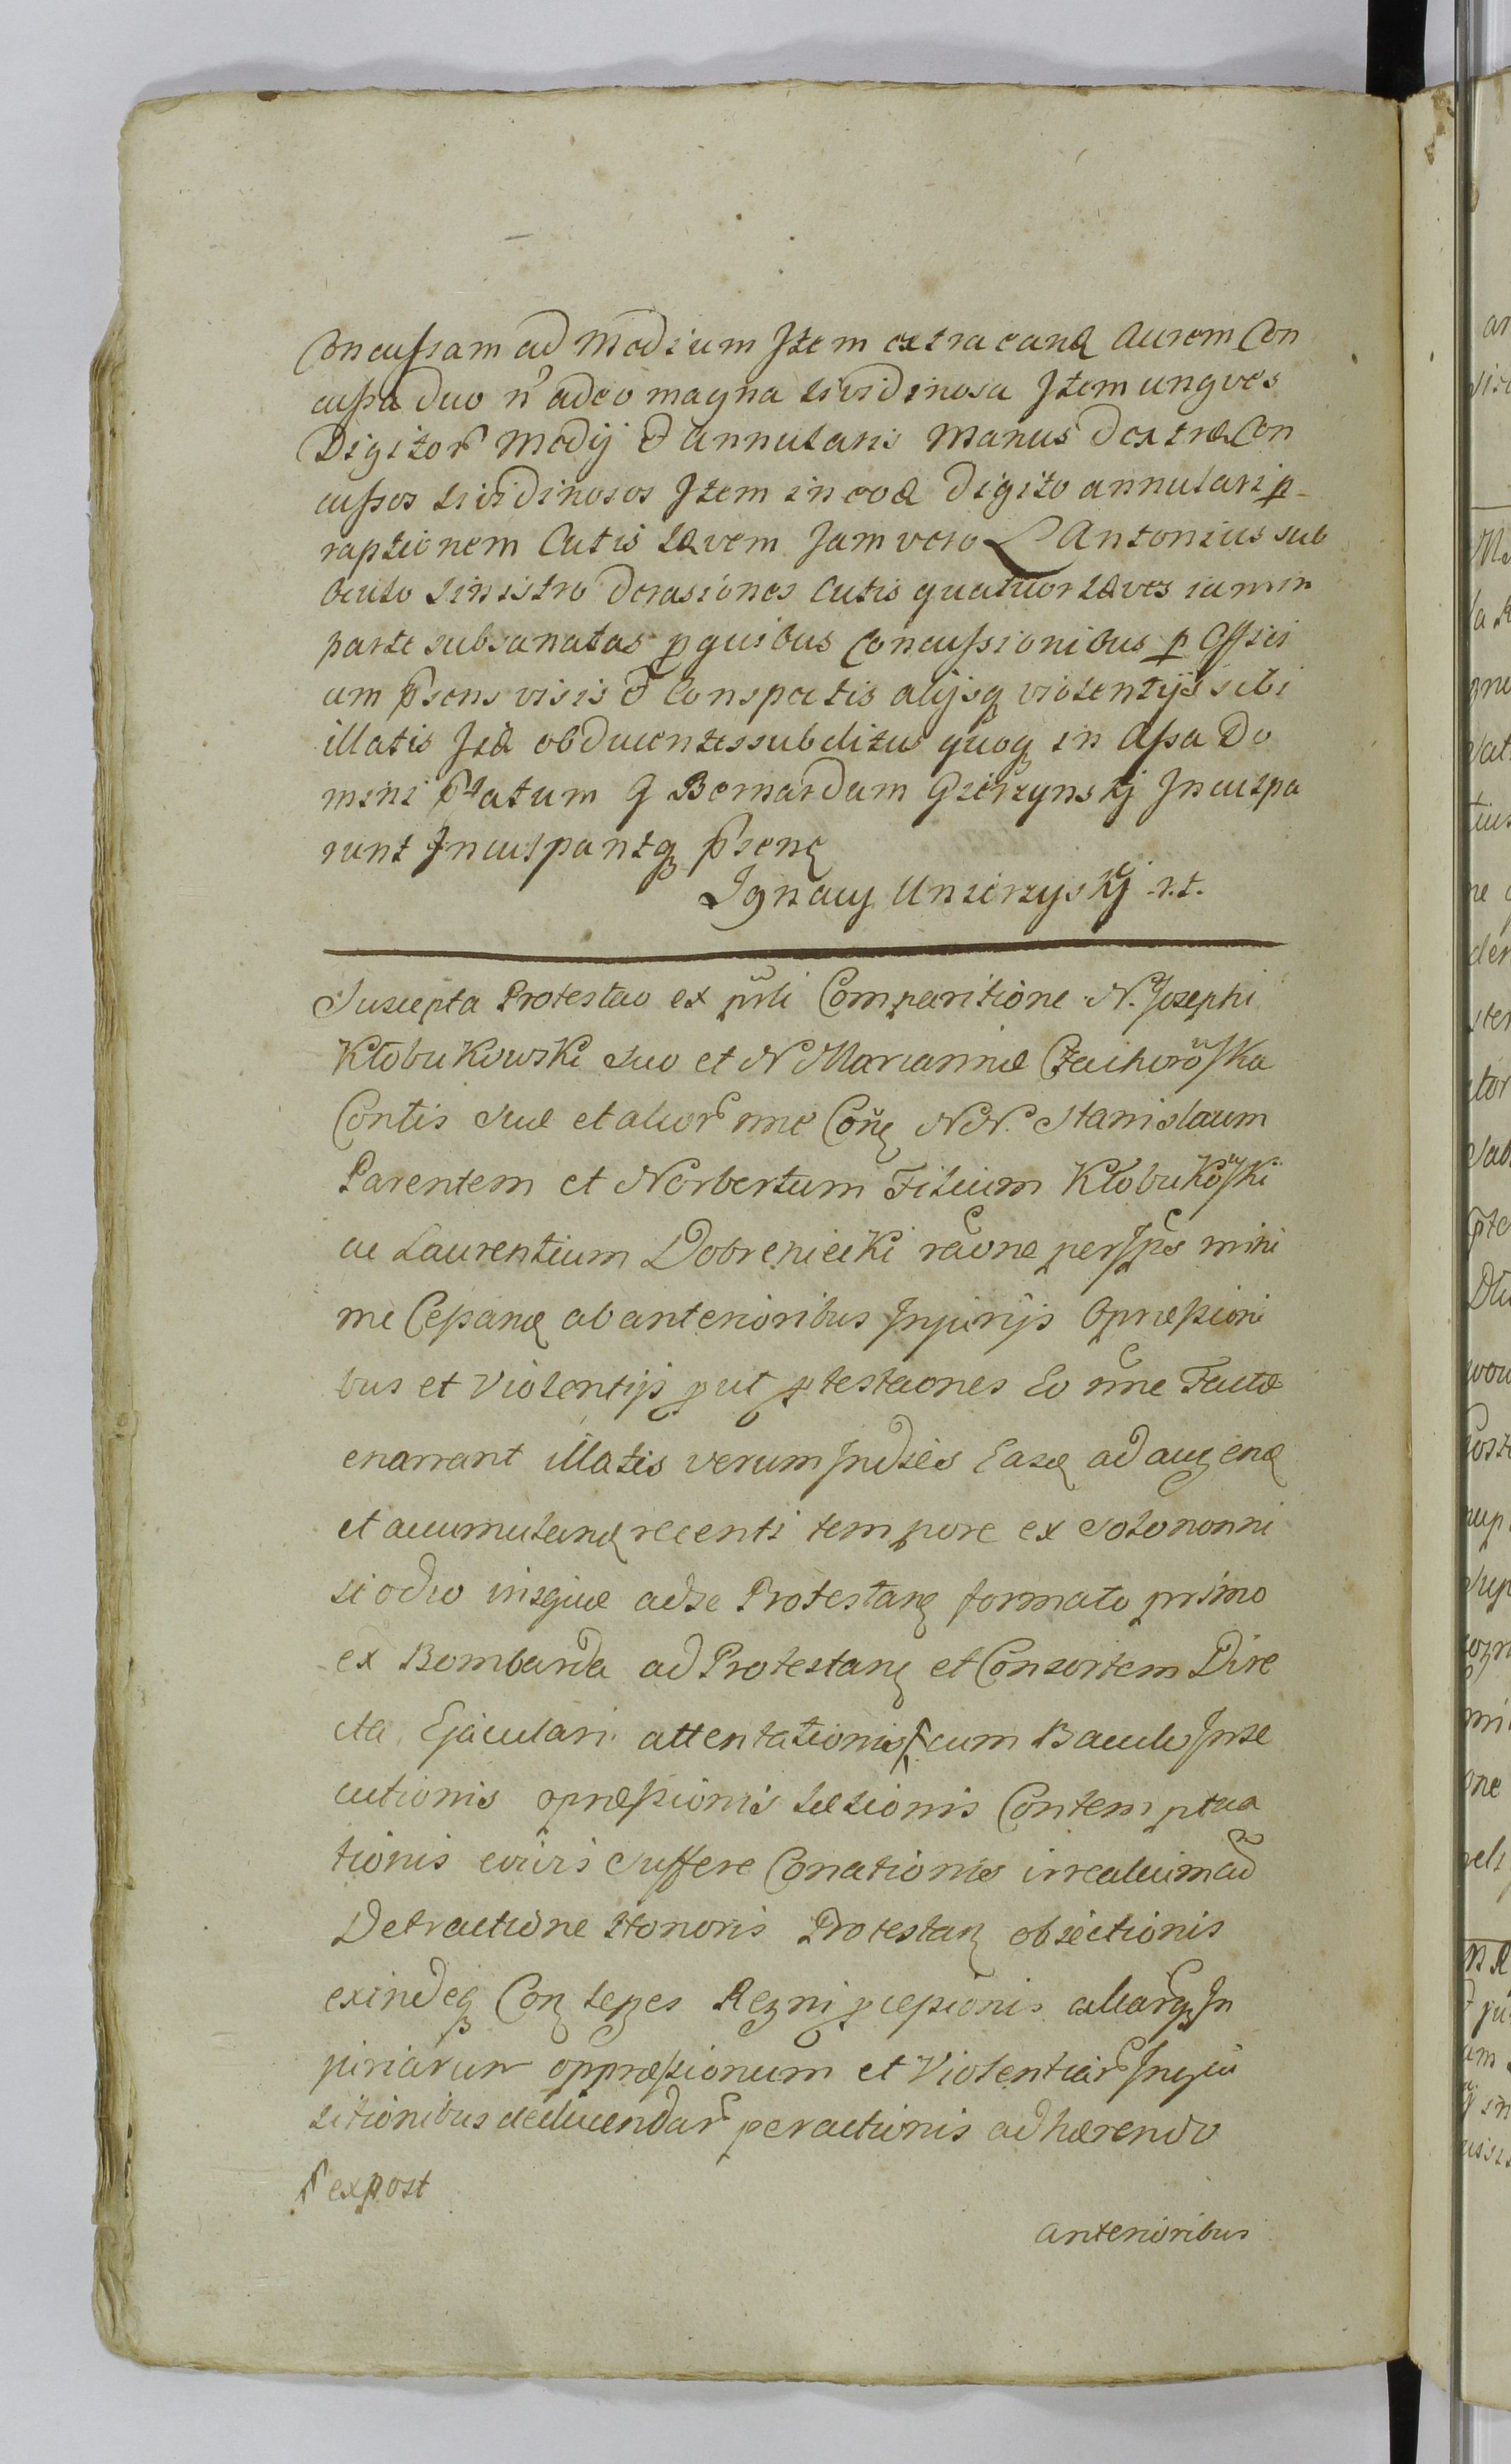 Concussam ad Modium Item extra eand Aurem Con
cussa duo n̄ adeo magna lividinosa Item ungves
Digitor Medij & annularis Manus dextræ Con
cussos lividinosos Item in eod digito annulari p_
raptionem Cutis lævem Jam vero L Antonius sub
oculo sinistro derasiones Cutis quatuor læves iam in
parte subsanatas p quibus Concussionibus p Offici
um p̄sens visis & Conspectis alijsq violentijs sibi
illatis obducentes subditus quoq in Assa Do
mini p̄fatum G Bernardum Gierzynskj Inculpa
runt Inculpantq p̄sent
Ignacy Unierzyskj r.t.
Suscepta Protestao ex p̄nli Comparitione N. Josephi
Kłobukowski suo et N Mariannæ Czachorôska
Contis suæ et alior nne Con̄ NN. Stanislaum
Parentem et Norbertum Filium Kłobukôski
ac Laurentium Dobreniecki raone per Ipos mini
me Cessand ab anterioribus Injurijs Opræssioni
bus et Violentijs put ptestaones Eo nne Factæ
enarrant illatis verum Indies Easd ad augend
et accumuland recenti tempore ex solo nonni
si odio iniquæ ad se Protestan formato primo
ex Bombarda ad Protestan et Consortem Dire
cta Ejaculari attentationis cum Baculo Inse
cutionis opræssionis læsionis Contemptua
tionis Conationis
Detractione Honoris Protestan objectionis
exindeq Con leges Regni pcessionis aliarq In
juriarum oppræssionum et Violentiar Inqui
sitionibus deducendar peractionis adhærendo
expost
anterioribus